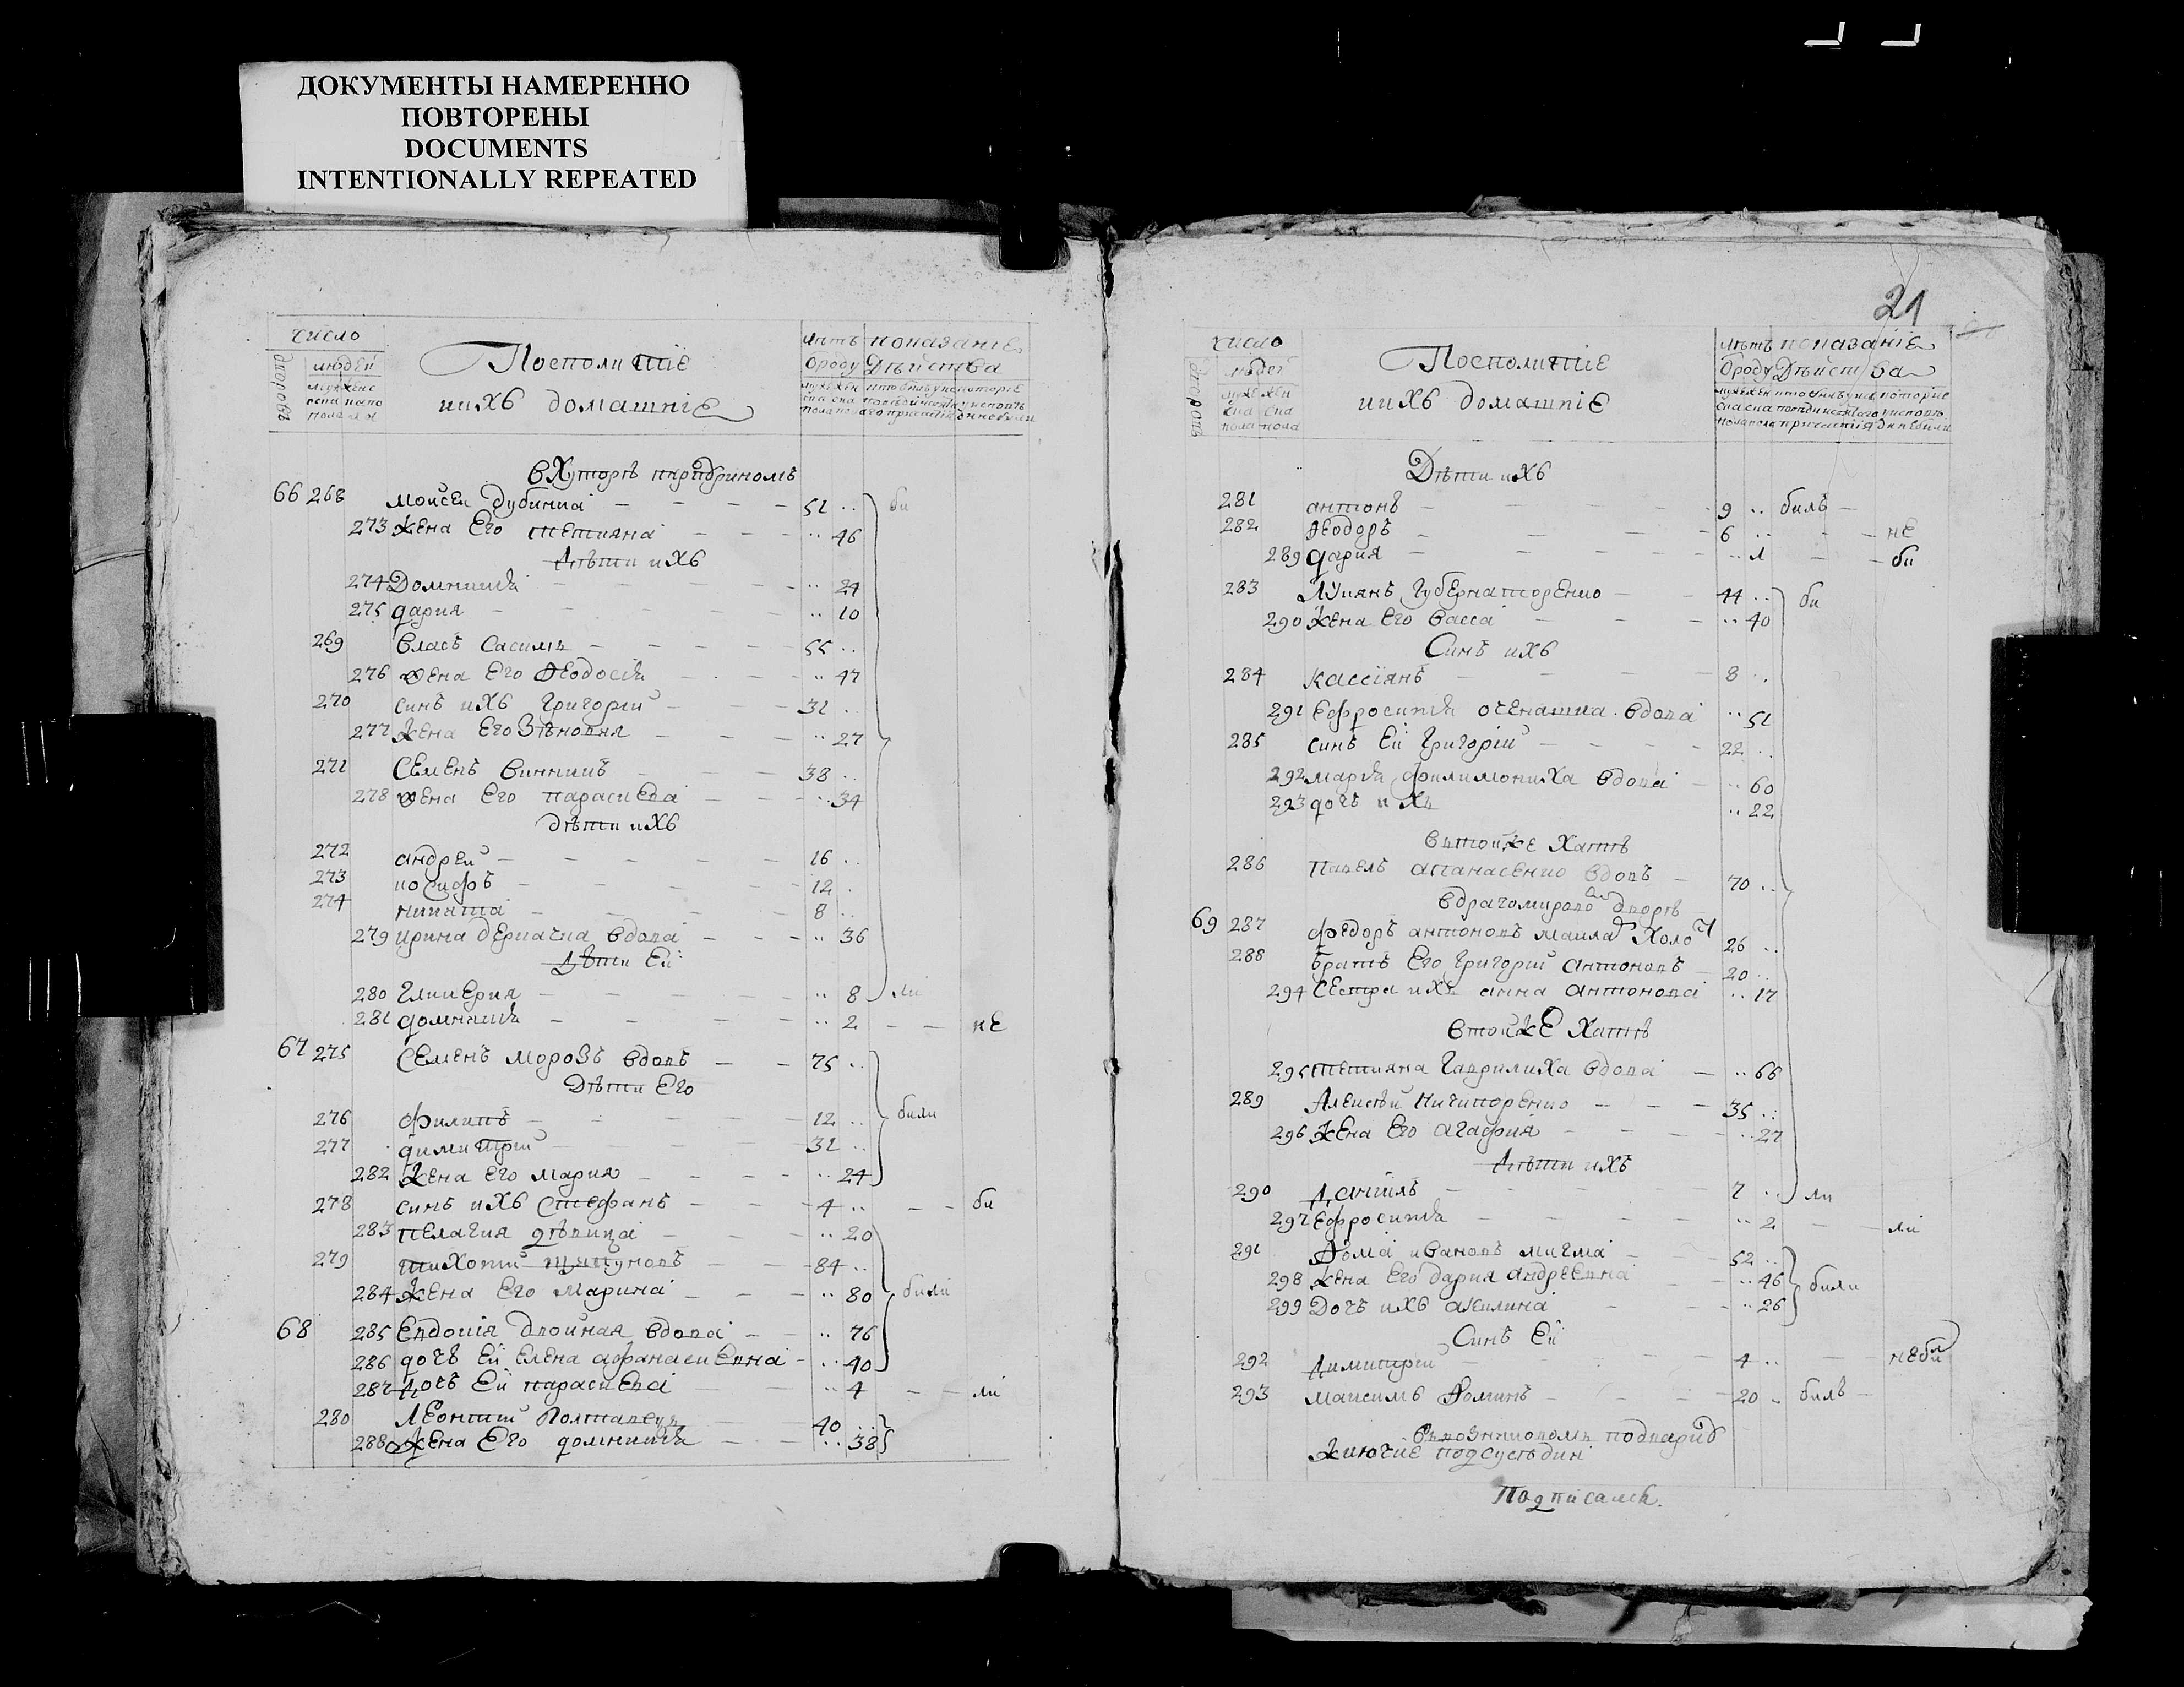 ДОКУМЕНТЫ НАМЕРЕННО
ПОВТОРЕНЫ
DOCUMENTS
INTENTIONALLY REPEATED
число
людей
Посполитіе
иихъ домашніе
лѣтъ показаніе
вроду дѣйства
вХуторѣ
66 268 моисей дубинка 51 .. би
273 жена его тетяна .. 46
дѣти ихъ
274 Домникія .. 24
275 дария .. 10
269 власъ 55 ..
276 жена его Ѳеодосія .. 47
270 синъ ихъ григорий 31 ..
277 жена его Зѣновия .. 27
271 семенъ винникъ 38 ..
278 жена его параскева .. 34
дѣти ихъ
272 андрей 16 ..
273 иосифъ 12 .
274 никита 8 ..
279 ирина вдова .. 36
дѣти ей
280 гликерия .. 8 ли
281 домникія .. 2 не
67 275 семенъ морозъ вдовъ 75 ..
дѣти его
276 филипъ 12 .. били
277 димитрий 31 ..
282 жена его мария .. 24
278 синъ ихъ стефанъ 4 .. би
283 пелагия дѣвица .. 20
279 тихон 84 ..
284 жена его марина .. 80 били
68 285 евдокія двойная вдова .. 76
286 дочъ ей елена афанасиевна .. 40
287 дочъ ей параскева .. 4 ли
280 леонтий 40 ..
288 жена его домникія .. 38
21
число
людей
Посполитіе
иихъ домашніе
лѣтъ показаніе
вроду дѣйства
Дѣти ихъ
281 антонъ 9 .. билъ
282 Ѳеодоръ 6 .. не
289 дария .. 1 би
283 Лукянъ губернаторенко 44 .. би
290 жена его васса .. 40
Синъ ихъ
284 кассіянъ 8 ..
291 ефросинія вдова .. 51
285 синъ ей григорій 22 ..
292 марія филимониха вдова .. 60
293 дочъ их .. 22
втойже хатѣ
286 павелъ апанасенко вдовъ 70 ..
дворѣ
69 287 федоръ антоновъ 26 ..
288 братъ его григорий антоновъ 20 ..
294 сестра ихъ анна антонова .. 17
втойже хатѣ
295 тетяна гаврилиха вдова .. 66
289 Алексѣй ничипоренко 35 ..
296 жена его агафия .. 27
дѣти ихъ
290 даніилъ 7 .. ли
297 ефросинія .. 2 ли
291 Ѳома ивановъ 52 ..
298 жена его дария андреевна .. 46 били
299 дочъ ихъ акилина .. 26
Синъ ей
292 димитрий 4 .. неби
293 максимъ Ѳоминъ 20 .. билъ
живучие подсусѣдки
Подписался.